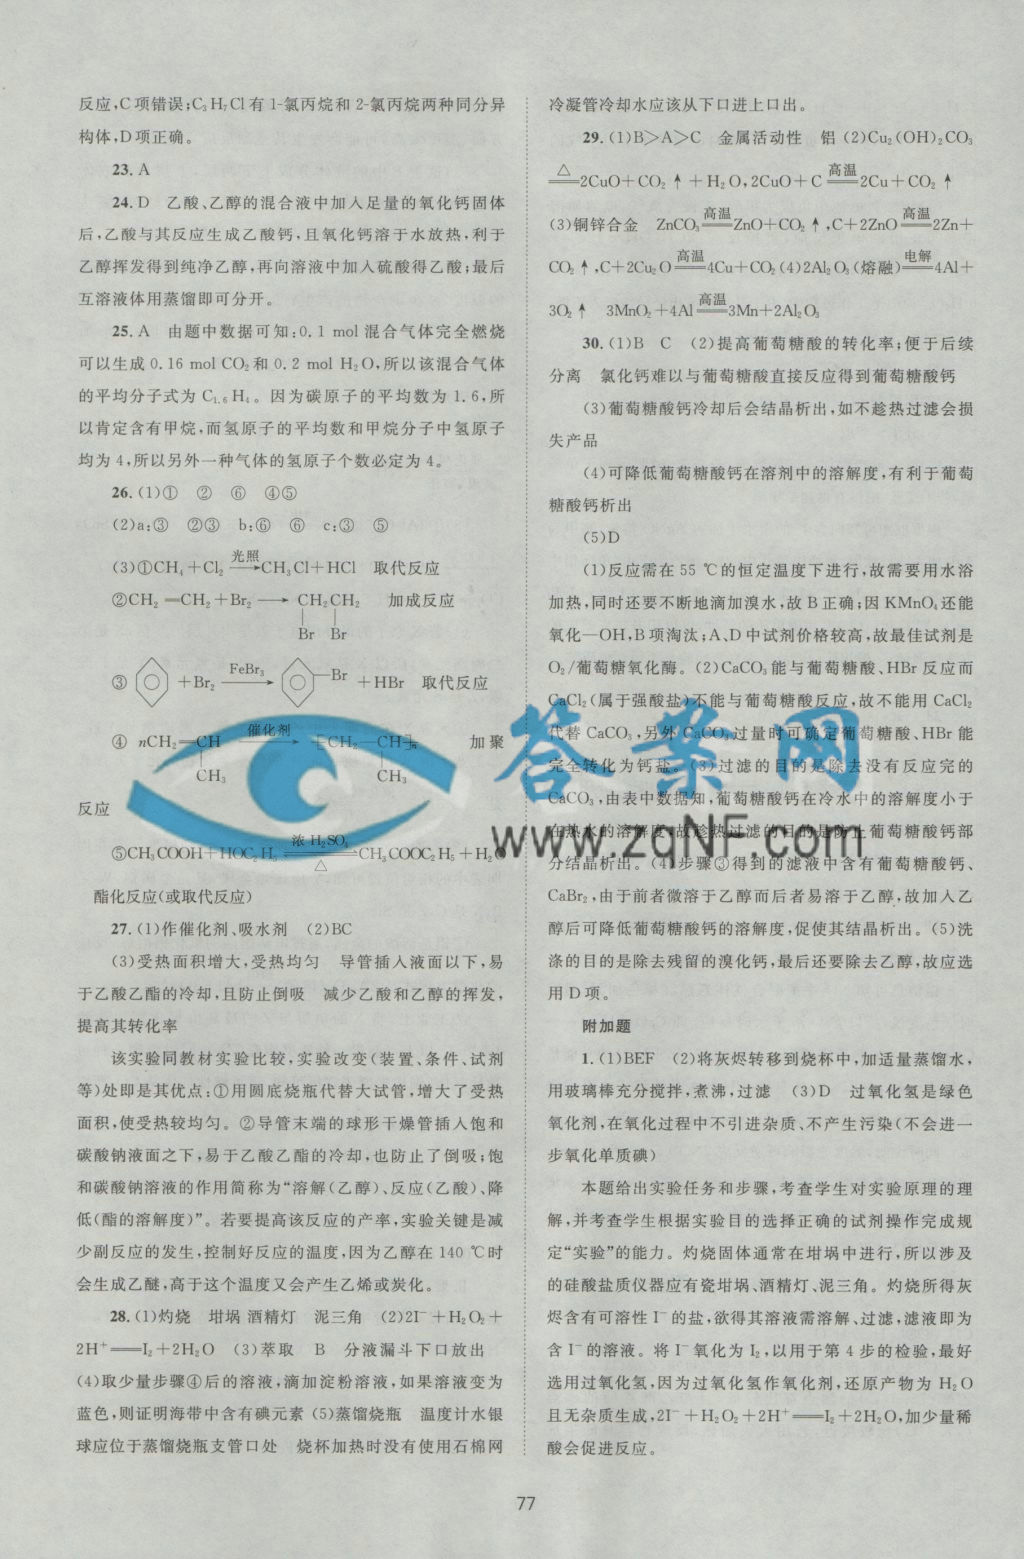 反应,C项错误;C₃H₇Cl有1-氯丙烷和2-氯丙烷两种同分异
构体,D项正确。
23. A
24. D 乙酸、乙醇的混合液中加入足量的氧化钙固体
后,乙酸与其反应生成乙酸钙,且氧化钙溶于水放热,利于
乙醇挥发得到纯净乙醇,再向溶液中加入硫酸得乙酸;最后
互溶液体用蒸馏即可分开。
25. A 由题中数据可知:0.1 mol混合气体完全燃烧
可以生成0.16 mol CO₂和0.2 mol H₂O,所以该混合气体
的平均分子式为C₁.₆H₄。因为碳原子的平均数为1.6,所
以肯定含有甲烷,而氢原子的平均数和甲烷分子中氢原子
均为4,所以另外一种气体的氢原子个数必定为4。
26. (1)① ② ⑥ ④⑤
(2)a:③ ②③ b:⑥ ⑥ c:③ ⑤
(3)①CH₄+Cl₂ 光照⟶ CH₃Cl+HCl 取代反应
②CH₂═CH₂+Br₂ ⟶ CH₂CH₂ 加成反应
Br Br
③ +Br₂ FeBr₃⟶ —Br +HBr 取代反应
④ nCH₂═CH 催化剂⟶ [CH₂—CH]ₙ 加聚
CH₃ CH₃
反应
⑤CH₃COOH+HOC₂H₅ 浓H₂SO₄ △ CH₃COOC₂H₅+H₂O
酯化反应(或取代反应)
27. (1)作催化剂、吸水剂 (2)BC
(3)受热面积增大,受热均匀 导管插入液面以下,易
于乙酸乙酯的冷却,且防止倒吸 减少乙酸和乙醇的挥发,
提高其转化率
该实验同教材实验比较,实验改变(装置、条件、试剂
等)处即是其优点:①用圆底烧瓶代替大试管,增大了受热
面积,使受热较均匀。②导管末端的球形干燥管插入饱和
碳酸钠液面之下,易于乙酸乙酯的冷却,也防止了倒吸;饱
和碳酸钠溶液的作用简称为“溶解(乙醇)、反应(乙酸)、降
低(酯的溶解度)”。若要提高该反应的产率,实验关键是减
少副反应的发生,控制好反应的温度,因为乙醇在140 ℃时
会生成乙醚,高于这个温度又会产生乙烯或炭化。
28. (1)灼烧 坩埚 酒精灯 泥三角 (2)2I⁻+H₂O₂+
2H⁺══I₂+2H₂O (3)萃取 B 分液漏斗下口放出
(4)取少量步骤④后的溶液,滴加淀粉溶液,如果溶液变为
蓝色,则证明海带中含有碘元素 (5)蒸馏烧瓶 温度计水银
球应位于蒸馏烧瓶支管口处 烧杯加热时没有使用石棉网
冷凝管冷却水应该从下口进上口出。
29. (1)B>A>C 金属活动性 铝 (2)Cu₂(OH)₂CO₃
△══2CuO+CO₂↑+H₂O,2CuO+C 高温══2Cu+CO₂↑
(3)铜锌合金 ZnCO₃ 高温══ZnO+CO₂↑,C+2ZnO 高温══2Zn+
CO₂↑,C+2Cu₂O 高温══4Cu+CO₂ (4)2Al₂O₃(熔融) 电解══4Al+
3O₂↑ 3MnO₂+4Al 高温══3Mn+2Al₂O₃
30. (1)B C (2)提高葡萄糖酸的转化率;便于后续
分离 氯化钙难以与葡萄糖酸直接反应得到葡萄糖酸钙
(3)葡萄糖酸钙冷却后会结晶析出,如不趁热过滤会损
失产品
(4)可降低葡萄糖酸钙在溶剂中的溶解度,有利于葡萄
糖酸钙析出
(5)D
(1)反应需在55 ℃的恒定温度下进行,故需要用水浴
加热,同时还要不断地滴加溴水,故B正确;因KMnO₄还能
氧化—OH,B项淘汰;A、D中试剂价格较高,故最佳试剂是
O₂/葡萄糖氧化酶。(2)CaCO₃能与葡萄糖酸、HBr反应而
CaCl₂(属于强酸盐)不能与葡萄糖酸反应,故不能用CaCl₂
代替CaCO₃,另外CaCO₃过量时可确定葡萄糖酸、HBr能
完全转化为钙盐。(3)过滤的目的是除去没有反应完的
CaCO₃,由表中数据知,葡萄糖酸钙在冷水中的溶解度小于
在热水的溶解度,故趁热过滤的目的是防止葡萄糖酸钙部
分结晶析出。(4)步骤③得到的滤液中含有葡萄糖酸钙、
CaBr₂,由于前者微溶于乙醇而后者易溶于乙醇,故加入乙
醇后可降低葡萄糖酸钙的溶解度,促使其结晶析出。(5)洗
涤的目的是除去残留的溴化钙,最后还要除去乙醇,故应选
用D项。
附加题
1. (1)BEF (2)将灰烬转移到烧杯中,加适量蒸馏水,
用玻璃棒充分搅拌,煮沸,过滤 (3)D 过氧化氢是绿色
氧化剂,在氧化过程中不引进杂质、不产生污染(不会进一
步氧化单质碘)
本题给出实验任务和步骤,考查学生对实验原理的理
解,并考查学生根据实验目的选择正确的试剂操作完成规
定“实验”的能力。灼烧固体通常在坩埚中进行,所以涉及
的硅酸盐质仪器应有瓷坩埚、酒精灯、泥三角。灼烧所得灰
烬含有可溶性I⁻的盐,欲得其溶液需溶解、过滤,滤液即为
含I⁻的溶液。将I⁻氧化为I₂,以用于第4步的检验,最好
选用过氧化氢,因为过氧化氢作氧化剂,还原产物为H₂O
且无杂质生成,2I⁻+H₂O₂+2H⁺══I₂+2H₂O,加少量稀
酸会促进反应。
答案网
www.zqnf.com
77